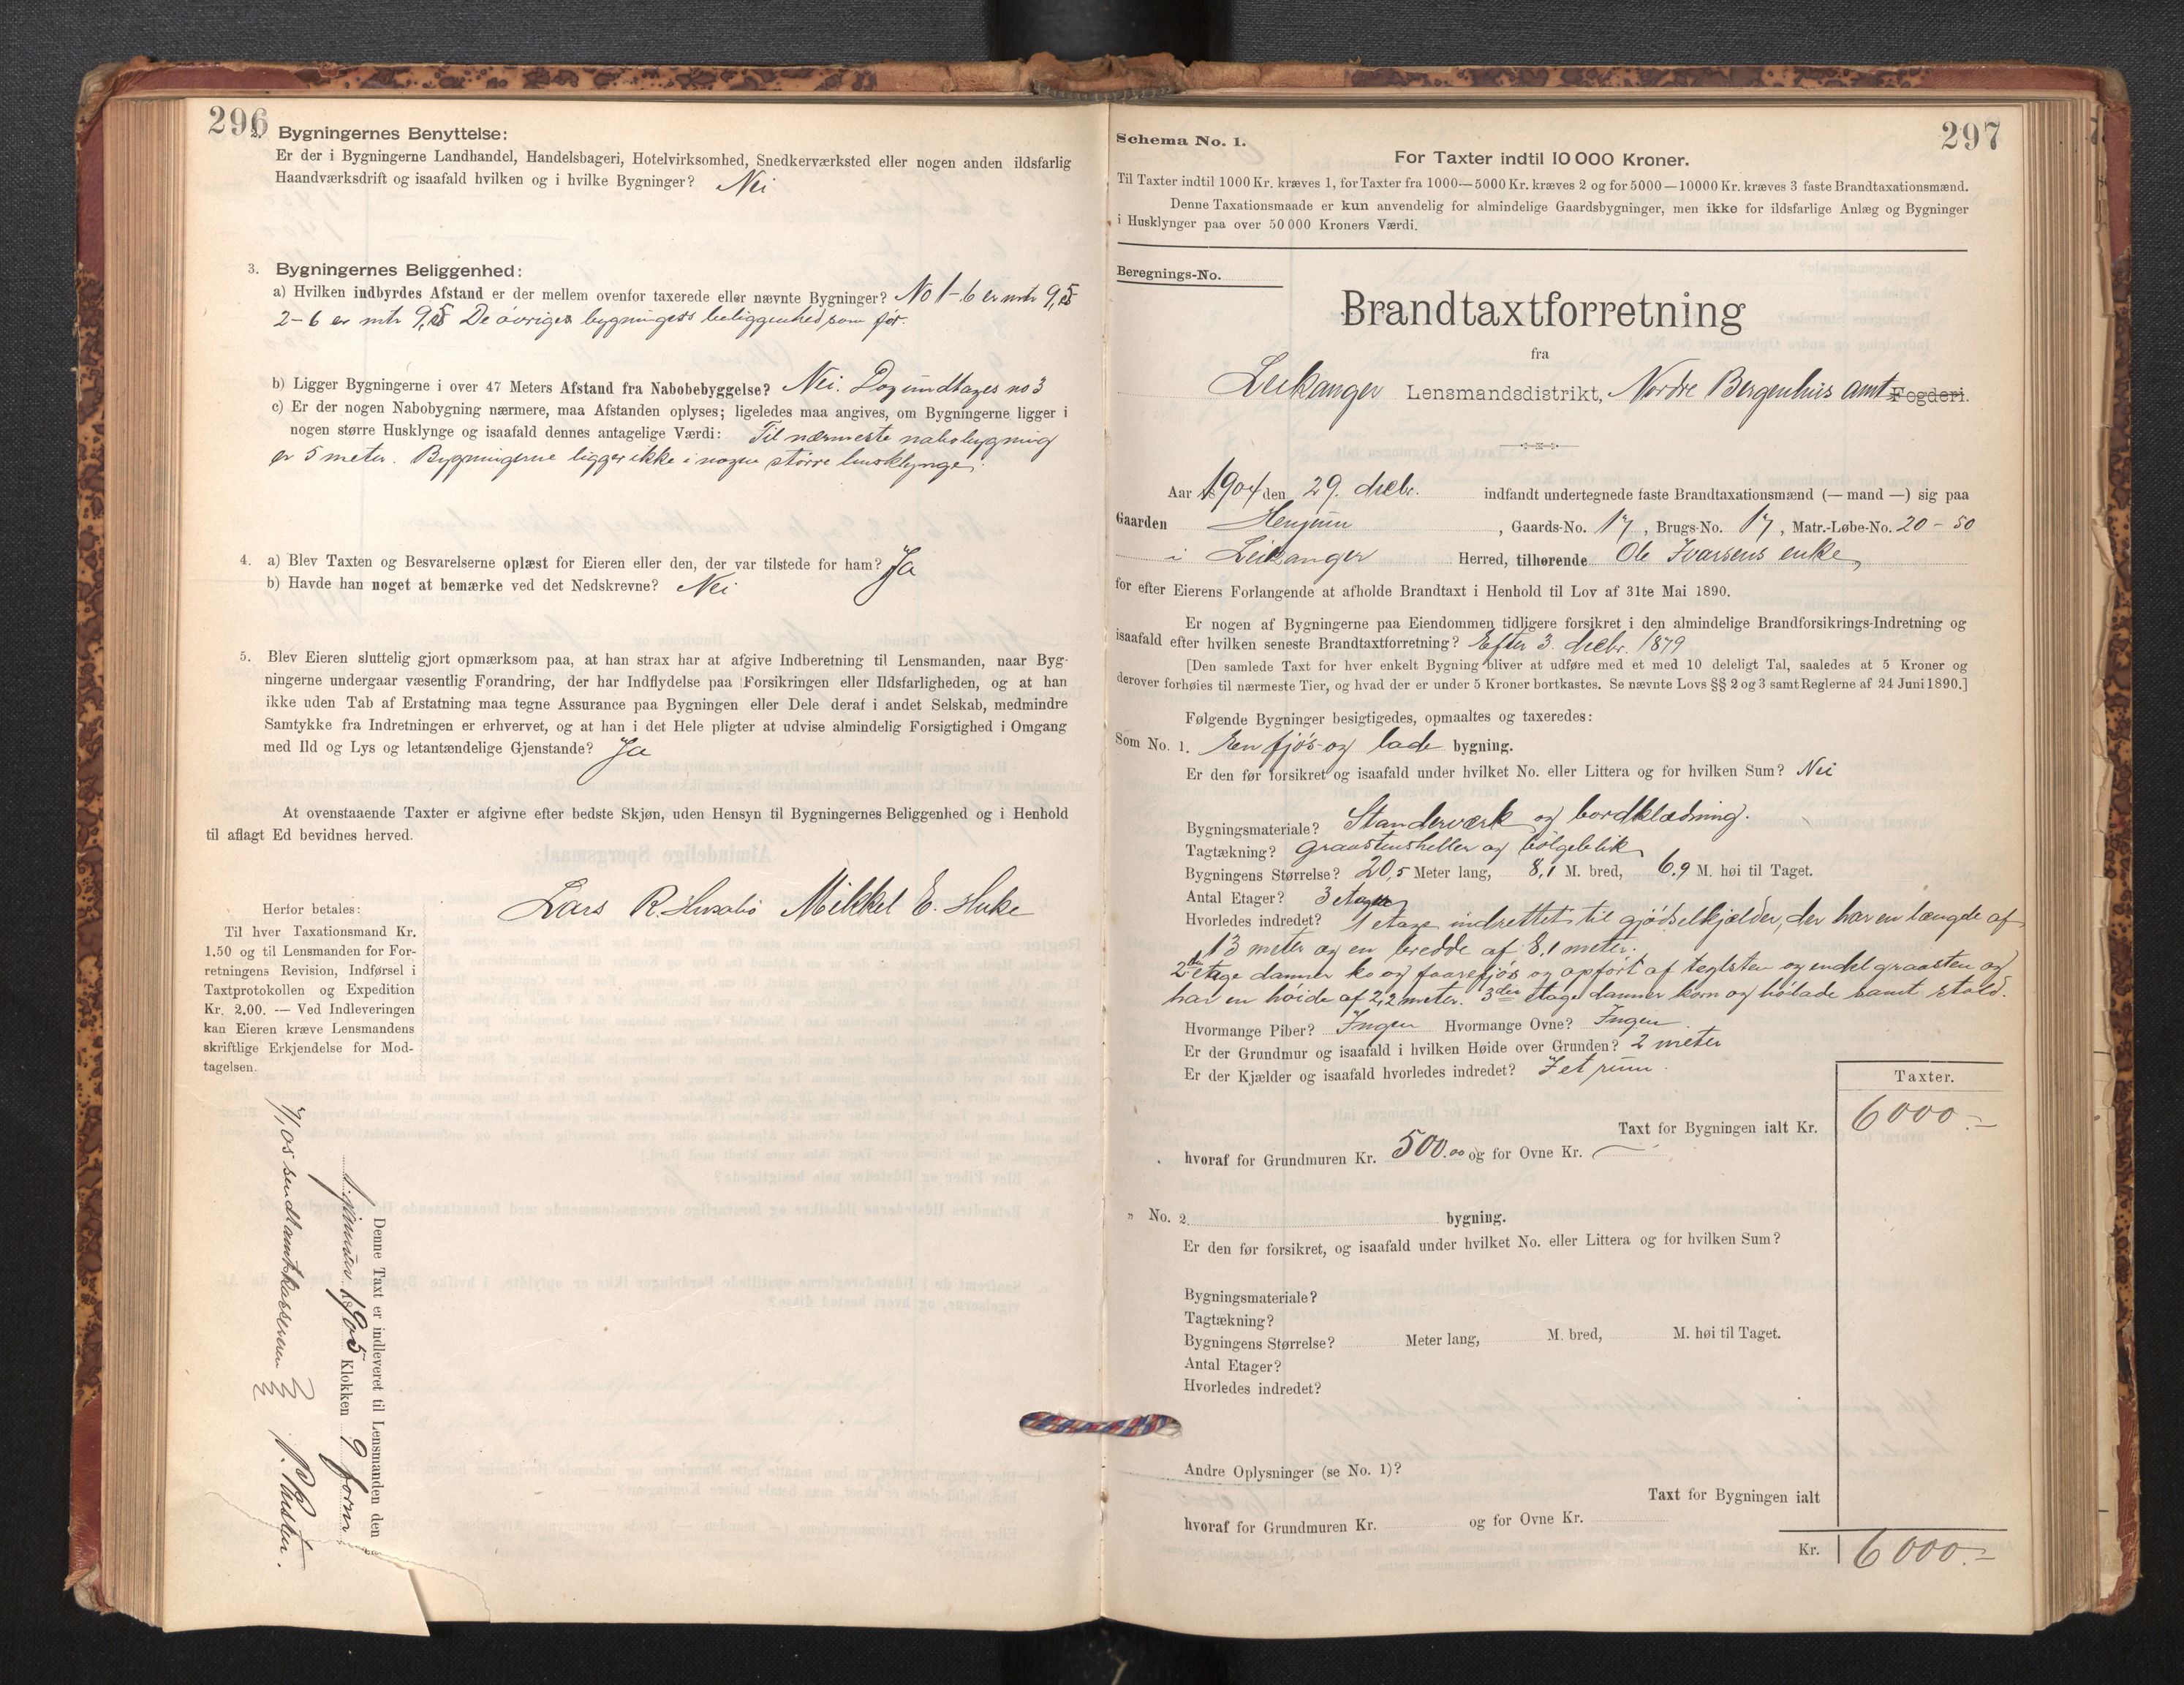 296
2. Bygningernes Benyttelse:
Er der i Bygningerne Landhandel, Handelsbageri, Hotelvirksomhed, Snedkerværksted eller nogen anden ildsfarlig
Haandværksdrift og isaafald hvilken og i hvilke Bygninger? Nei
3. Bygningernes Beliggenhed:
a) Hvilken indbyrdes Afstand er der mellem ovenfor taxerede eller nævnte Bygninger? No 1-6 er mtr 9,5
2-6 er mtr 9,5 De øvriges bygningers beliggenhed som før.
b) Ligger Bygningerne i over 47 Meters Afstand fra Nabobebyggelse? Nei. Dog undtages no 3
c) Er der nogen Nabobygning nærmere, maa Afstanden oplyses; ligeledes maa angives, om Bygningerne ligger i
nogen større Husklynge og isaafald dennes antagelige Værdi: Til nærmeste nabobygning
er 5 meter. Bygningerne ligger ikke i nogen større husklynge.
4. a) Blev Taxten og Besvarelserne oplæst for Eieren eller den, der var tilstede for ham? Ja
b) Havde han noget at bemærke ved det Nedskrevne? Nei
5. Blev Eieren sluttelig gjort opmærksom paa, at han strax har at afgive Indberetning til Lensmanden, naar Byg-
ningerne undergaar væsentlig Forandring, der har Indflydelse paa Forsikringen eller Ildsfarligheden, og at han
ikke uden Tab af Erstatning maa tegne Assurance paa Bygningen eller Dele deraf i andet Selskab, medmindre
Samtykke fra Indretningen er erhvervet, og at han i det Hele pligter at udvise almindelig Forsigtighed i Omgang
med Ild og Lys og letantændelige Gjenstande? Ja
At ovenstaaende Taxter er afgivne efter bedste Skjøn, uden Hensyn til Bygningernes Beliggenhed og i Henhold
til aflagt Ed bevidnes herved.
Lars R. Husabø Mikkel E. Huke
Herfor betales:
Til hver Taxationsmand Kr.
1.50 og til Lensmanden for For-
retningens Revision, Indførsel i
Taxtprotokollen og Expedition
Kr. 2.00. — Ved Indleveringen
kan Eieren kræve Lensmandens
skriftlige Erkjendelse for Mod-
tagelsen.
Denne Taxt er indleveret til Lensmanden den
januar 1905 Klokken 9 form.
05 sendt amtskassereren
297
Schema No. 1.
For Taxter indtil 10 000 Kroner.
Til Taxter indtil 1000 Kr. kræves 1, for Taxter fra 1000—5000 Kr. kræves 2 og for 5000—10000 Kr. kræves 3 faste Brandtaxationsmænd.
Denne Taxationsmaade er kun anvendelig for almindelige Gaardsbygninger, men ikke for ildsfarlige Anlæg og Bygninger
i Husklynger paa over 50 000 Kroners Værdi.
Beregnings-No.
Brandtaxtforretning
fra
Leikanger Lensmandsdistrikt, Nordre Bergenhus amt Fogderi.
Aar 1904 den 29. decbr. indfandt undertegnede faste Brandtaxationsmænd (— mand —) sig paa
Gaarden Henjum, Gaards-No. 17, Brugs-No. 17, Matr.-Løbe-No. 20-50
i Leikanger Herred, tilhørende Ole Ivarsens enke,
for efter Eierens Forlangende at afholde Brandtaxt i Henhold til Lov af 31te Mai 1890.
Er nogen af Bygningerne paa Eiendommen tidligere forsikret i den almindelige Brandforsikrings-Indretning og
isaafald efter hvilken seneste Brandtaxtforretning? Efter 3. decbr. 1879
[Den samlede Taxt for hver enkelt Bygning bliver at udføre med et med 10 deleligt Tal, saaledes at 5 Kroner og
derover forhøies til nærmeste Tier, og hvad der er under 5 Kroner bortkastes. Se nævnte Lovs §§ 2 og 3 samt Reglerne af 24 Juni 1890.]
Følgende Bygninger besigtigedes, opmaaltes og taxeredes:
Som No. 1. En fjøs- og lade bygning.
Er den før forsikret og isaafald under hvilket No. eller Littera og for hvilken Sum? Nei
Bygningsmateriale? Standerværk og bordklædning.
Tagtækning? Graastensheller og bølgeblik
Bygningens Størrelse? 20,5 Meter lang, 8,1 M. bred, 6,9 M. høi til Taget.
Antal Etager? 3 etager
Hvorledes indredet? 1 etage indrettet til gjødselkjælder, der har en længde af
13 meter og en bredde af 8,1 meter.
2den etage danner ko og faarefjøs og opført af teglsten og endel graasten og
har en høide af 2,2 meter. 3die etage danner korn og hølade samt stald.
Hvormange Piber? Ingen Hvormange Ovne? Ingen
Er der Grundmur og isaafald i hvilken Høide over Grunden? 2 meter
Er der Kjælder og isaafald hvorledes indredet? I et rum.
Taxter.
Taxt for Bygningen ialt Kr. 6000.—
hvoraf for Grundmuren Kr. 500.00 og for Ovne Kr. —
„ No. 2 bygning.
Er den før forsikret, og isaafald under hvilket No. eller Littera og for hvilken Sum?
Bygningsmateriale?
Tagtækning?
Bygningens Størrelse? Meter lang, M. bred, M. høi til Taget.
Antal Etager?
Hvorledes indredet?
Andre Oplysninger (se No. 1)?
Taxt for Bygningen ialt
hvoraf for Grundmuren Kr. og for Ovne Kr.
Kr. 6000.—